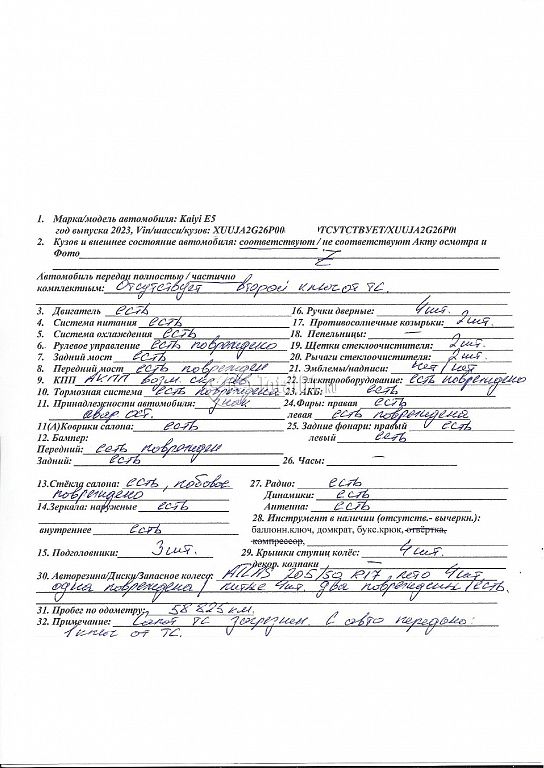 1. Марка/модель автомобиля: Kaiyi E5
год выпуска 2023, Vin/шасси/кузов: XUUJA2G26P00 ОТСУТСТВУЕТ/XUUJA2G26P0
2. Кузов и внешнее состояние автомобиля: соответствуют / не соответствуют Акту осмотра и
Фото Z
Автомобиль передан полностью / частично
комплектным: Отсутствует второй ключ от ТС.
3. Двигатель есть 16. Ручки дверные: 4 шт.
4. Система питания есть 17. Противосолнечные козырьки: 2 шт.
5. Система охлаждения есть 18. Пепельницы: —
6. Рулевое управление есть повреждено 19. Щетки стеклоочистителя: 2 шт.
7. Задний мост есть 20. Рычаги стеклоочистителя: 2 шт.
8. Передний мост есть поврежден 21. Эмблемы/надписи:
9. КПП АКПП возм. скр. пов. 22. Электрооборудование: есть повреждено
10. Тормозная система есть повреждена 23. АКБ: есть
11. Принадлежности автомобиля: знак 24. Фары: правая есть
авар. ост. левая есть повреждена
11(А)Коврики салона: есть 25. Задние фонари: правый есть
12. Бампер: левый есть
Передний: есть поврежден
Задний: есть 26. Часы: —
13.Стёкла салона: есть, лобовое 27. Радио: есть
повреждено Динамики: есть
14.Зеркала: наружные есть Антенна: есть
28. Инструмент в наличии (отсутств.- вычеркн.):
внутреннее есть баллонн.ключ, домкрат, букс.крюк, отвёртка,
компрессор,
15. Подголовники: 3 шт. 29. Крышки ступиц колёс: 4 шт.
декор. колпаки —
30. Авторезина/Диски/Запасное колесо: ATLAS 205/50 R17, лето 4 шт
одна повреждена / литые 4 шт. два повреждены / есть.
31. Пробег по одометру: 58 823 км.
32. Примечание: Салон ТС загрязнен. С авто передано:
1 ключ от ТС.